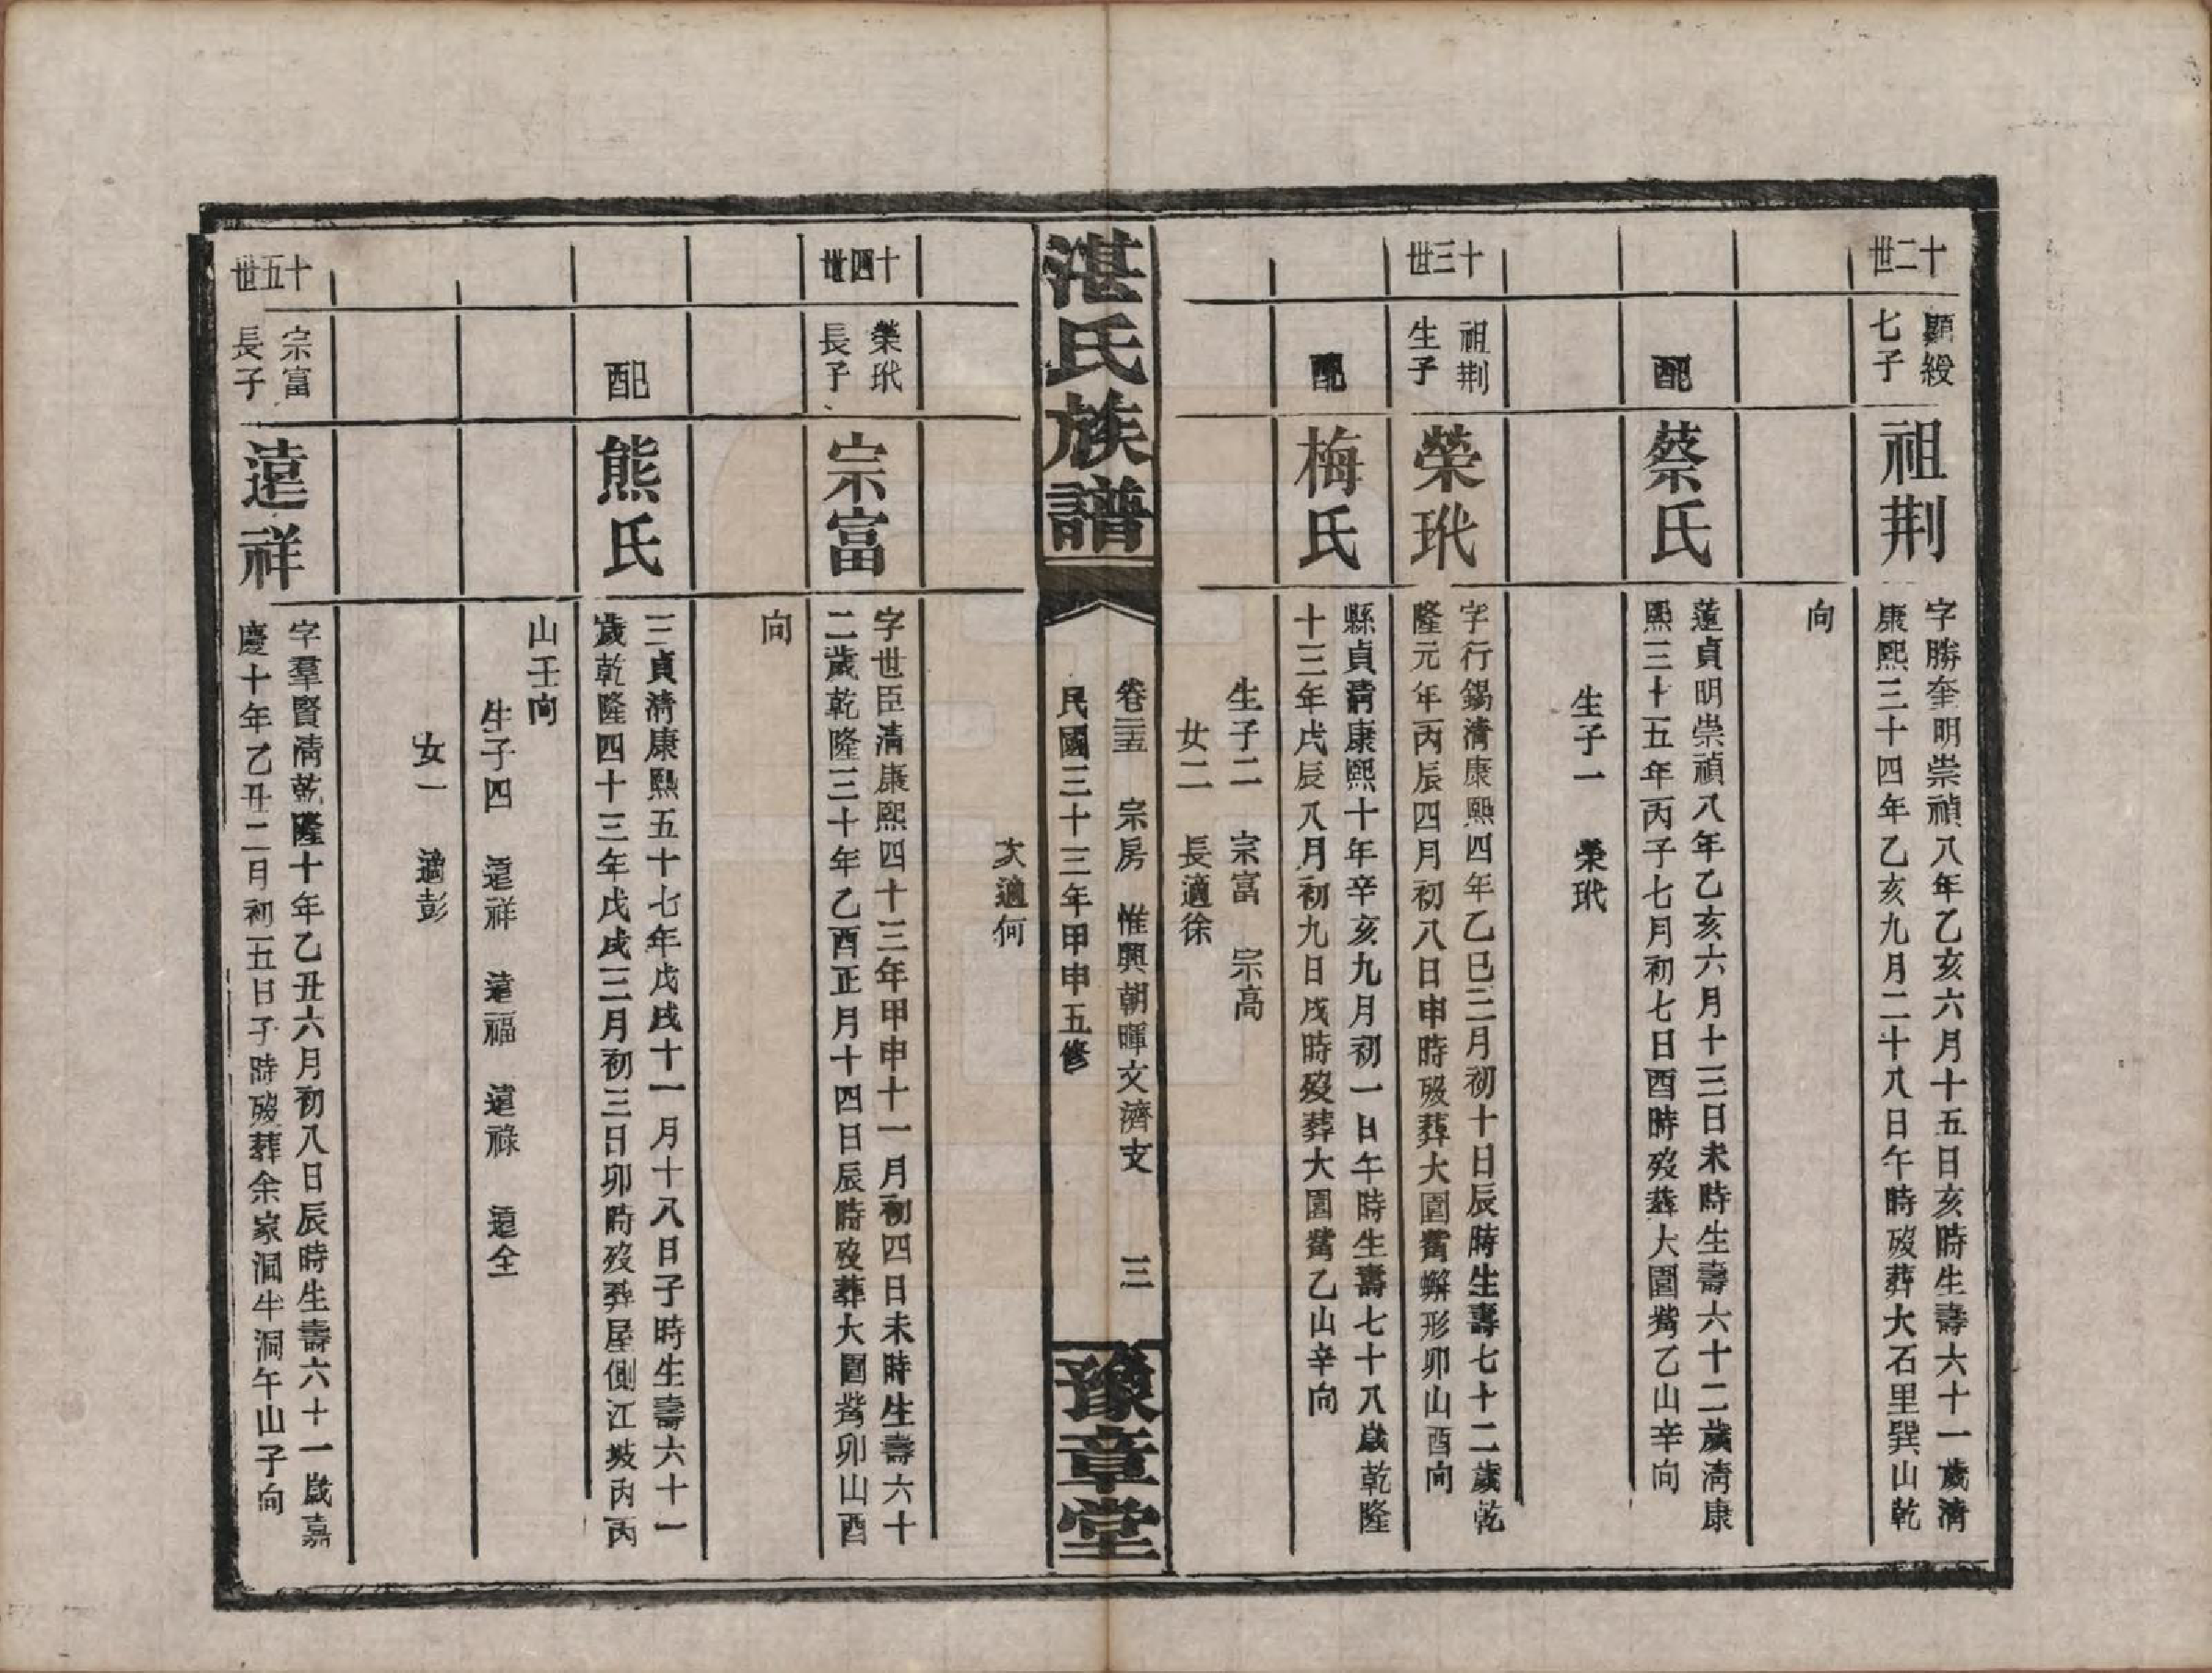 十二世
顯緩
七子
祖荆
字勝奎明崇禎八年乙亥六月十五日亥時生壽六十一歲清
康熙三十四年乙亥九月二十八日午時歿葬大石里巽山乾
向
配
蔡氏
蓮貞明崇禎八年乙亥六月十三日未時生壽六十二歲清康
熙三十五年丙子七月初七日酉時歿葬大園嘴乙山辛向
生子一 榮玳
十三世
祖荆
生子
榮玳
字行錫清康熙四年乙巳三月初十日辰時生壽七十二歲乾
隆元年丙辰四月初八日申時歿葬大園嘴蠏形卯山酉向
配
梅氏
縣貞清康熙十年辛亥九月初一日午時生壽七十八歲乾隆
十三年戊辰八月初九日戌時歿葬大園嘴乙山辛向
生子二 宗富 宗高
女二 長適徐
湛氏族譜
卷三五 宗房 惟興朝暉文濟支 三
民國三十三年甲申五修
豫章堂
次適何
十四世
榮玳
長子
宗富
字世臣清康熙四十三年甲申十一月初四日未時生壽六十
二歲乾隆三十年乙酉正月十四日辰時歿葬大園嘴卯山酉
向
配
熊氏
三貞清康熙五十七年戊戌十一月十八日子時生壽六十一
歲乾隆四十三年戊戌三月初三日卯時歿葬屋側江坡丙丙
山壬向
生子四 遠祥 遠福 遠祿 遠全
女一 適彭
十五世
宗富
長子
遠祥
字羣賢清乾隆十年乙丑六月初八日辰時生壽六十一歲嘉
慶十年乙丑二月初五日子時歿葬余家洞牛洞午山子向